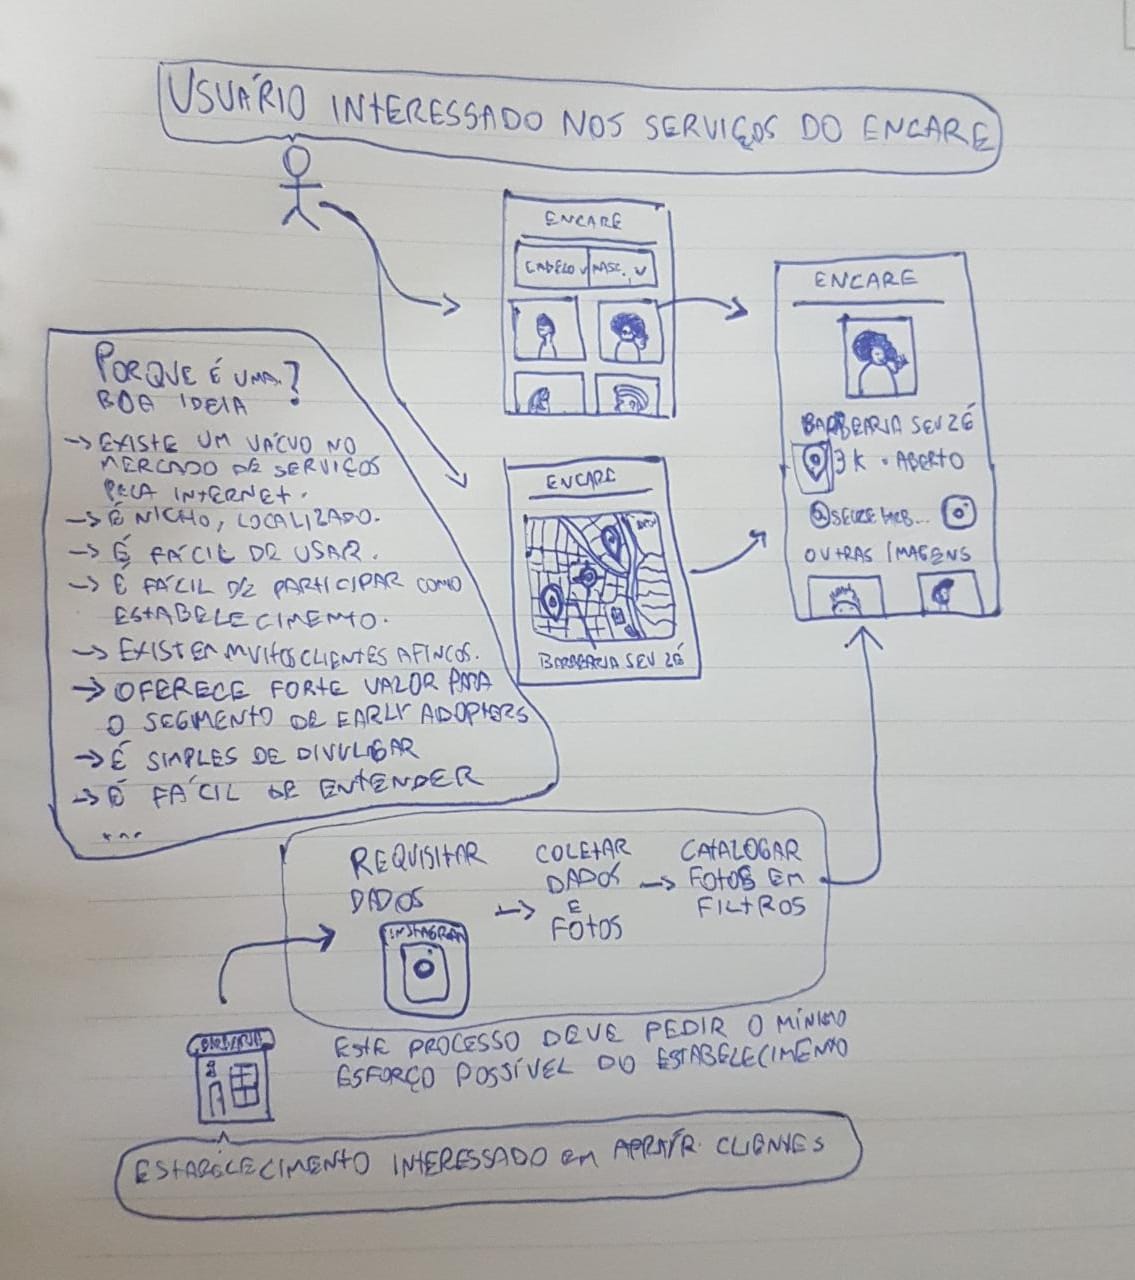 USUÁRIO INTERESSADO NOS SERVIÇOS DO ENCARE
ENCARE
CABELO MASC.
ENCARE
BARBEARIA SEU ZÉ
3 K • ABERTO
OUTRAS IMAGENS
ENCARE
BARBEARIA SEU ZÉ
PORQUE É UMA ?
BOA IDEIA
→ EXISTE UM VÁCUO NO
MERCADO DE SERVIÇOS
PELA INTERNET.
→ É NICHO, LOCALIZADO.
→ É FÁCIL DE USAR.
→ É FÁCIL DE PARTICIPAR COMO
ESTABELECIMENTO.
→ EXISTEM MUITOS CLIENTES AFINCOS.
→ OFERECE FORTE VALOR PARA
O SEGMENTO DE EARLY ADOPTERS
→ É SIMPLES DE DIVULGAR
→ É FÁCIL DE ENTENDER
...
REQUISITAR
DADOS
INSTAGRAM
→ COLETAR
DADOS
E
FOTOS
→ CATALOGAR
FOTOS EM
FILTROS
BARBEARIA
ESTE PROCESSO DEVE PEDIR O MÍNIMO
ESFORÇO POSSÍVEL DO ESTABELECIMENTO
ESTABELECIMENTO INTERESSADO EM CLIENTES